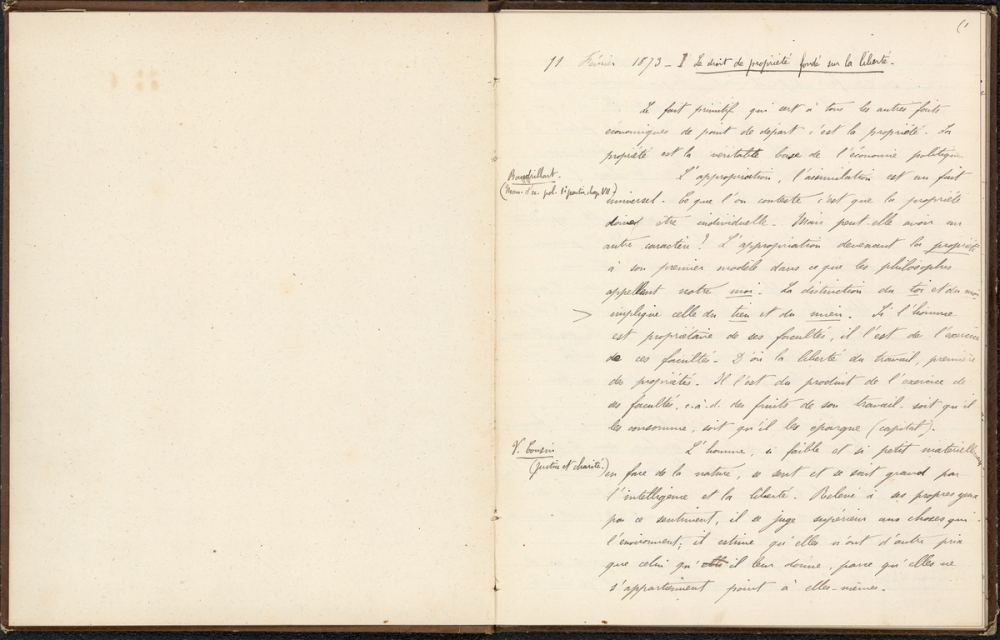 11 Février 1873 - I Le droit de propriété fondé sur la liberté.
Le fait primitif qui sert à tous les autres faits
économiques de point de départ c'est la propriété. La
propriété est la véritable base de l'économie politique
Baudrillart.
(Man. d'ec. pol. 1e partie chap VII)
L'appropriation, l'assimilation est un fait
universel. Ce que l'on conteste c'est que la propriété
doive être individuelle. Mais peut-elle avoir un
autre caractère? L'appropriation devenant la propriété
a son premier modèle dans ce que les philosophes
appellent notre moi. La distinction du toi et du moi
> implique celle du tien et du mien. Si l'homme
est propriétaire de ses facultés, il l'est de l'exercice
de ces facultés. D'où la liberté du travail, première
des propriétés. Il l'est du produit de l'exercice de
ses facultés, c.à.d. des fruits de son travail. soit qu'il
les consomme, soit qu'il les épargne (capital).
V. Cousin
(Justice et charité.)
L'homme, si faible et si petit matériellement
en face de la nature, se sent et se sait grand par
l'intelligence et la liberté. Relevé à ses propres yeux
par ce sentiment, il se juge supérieur aux choses qui
l'environnent; il estime qu'elles n'ont d'autre prix
que celui qu'il leur donne, parce qu'elles ne
s'appartiennent point à elles-mêmes.